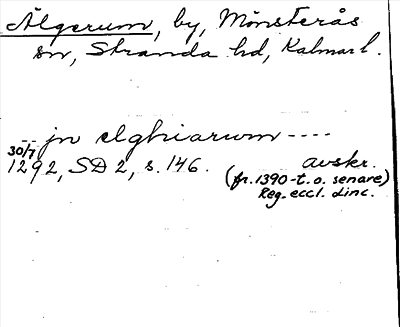 Älgerum, by, Mönsterås
sn, Stranda hd, Kalmar l.
-- jn elghiarum ----
30/7 1292, SD 2, s. 146. avskr.
(fr. 1390-t. o. senare)
Reg. eccl. Linc.